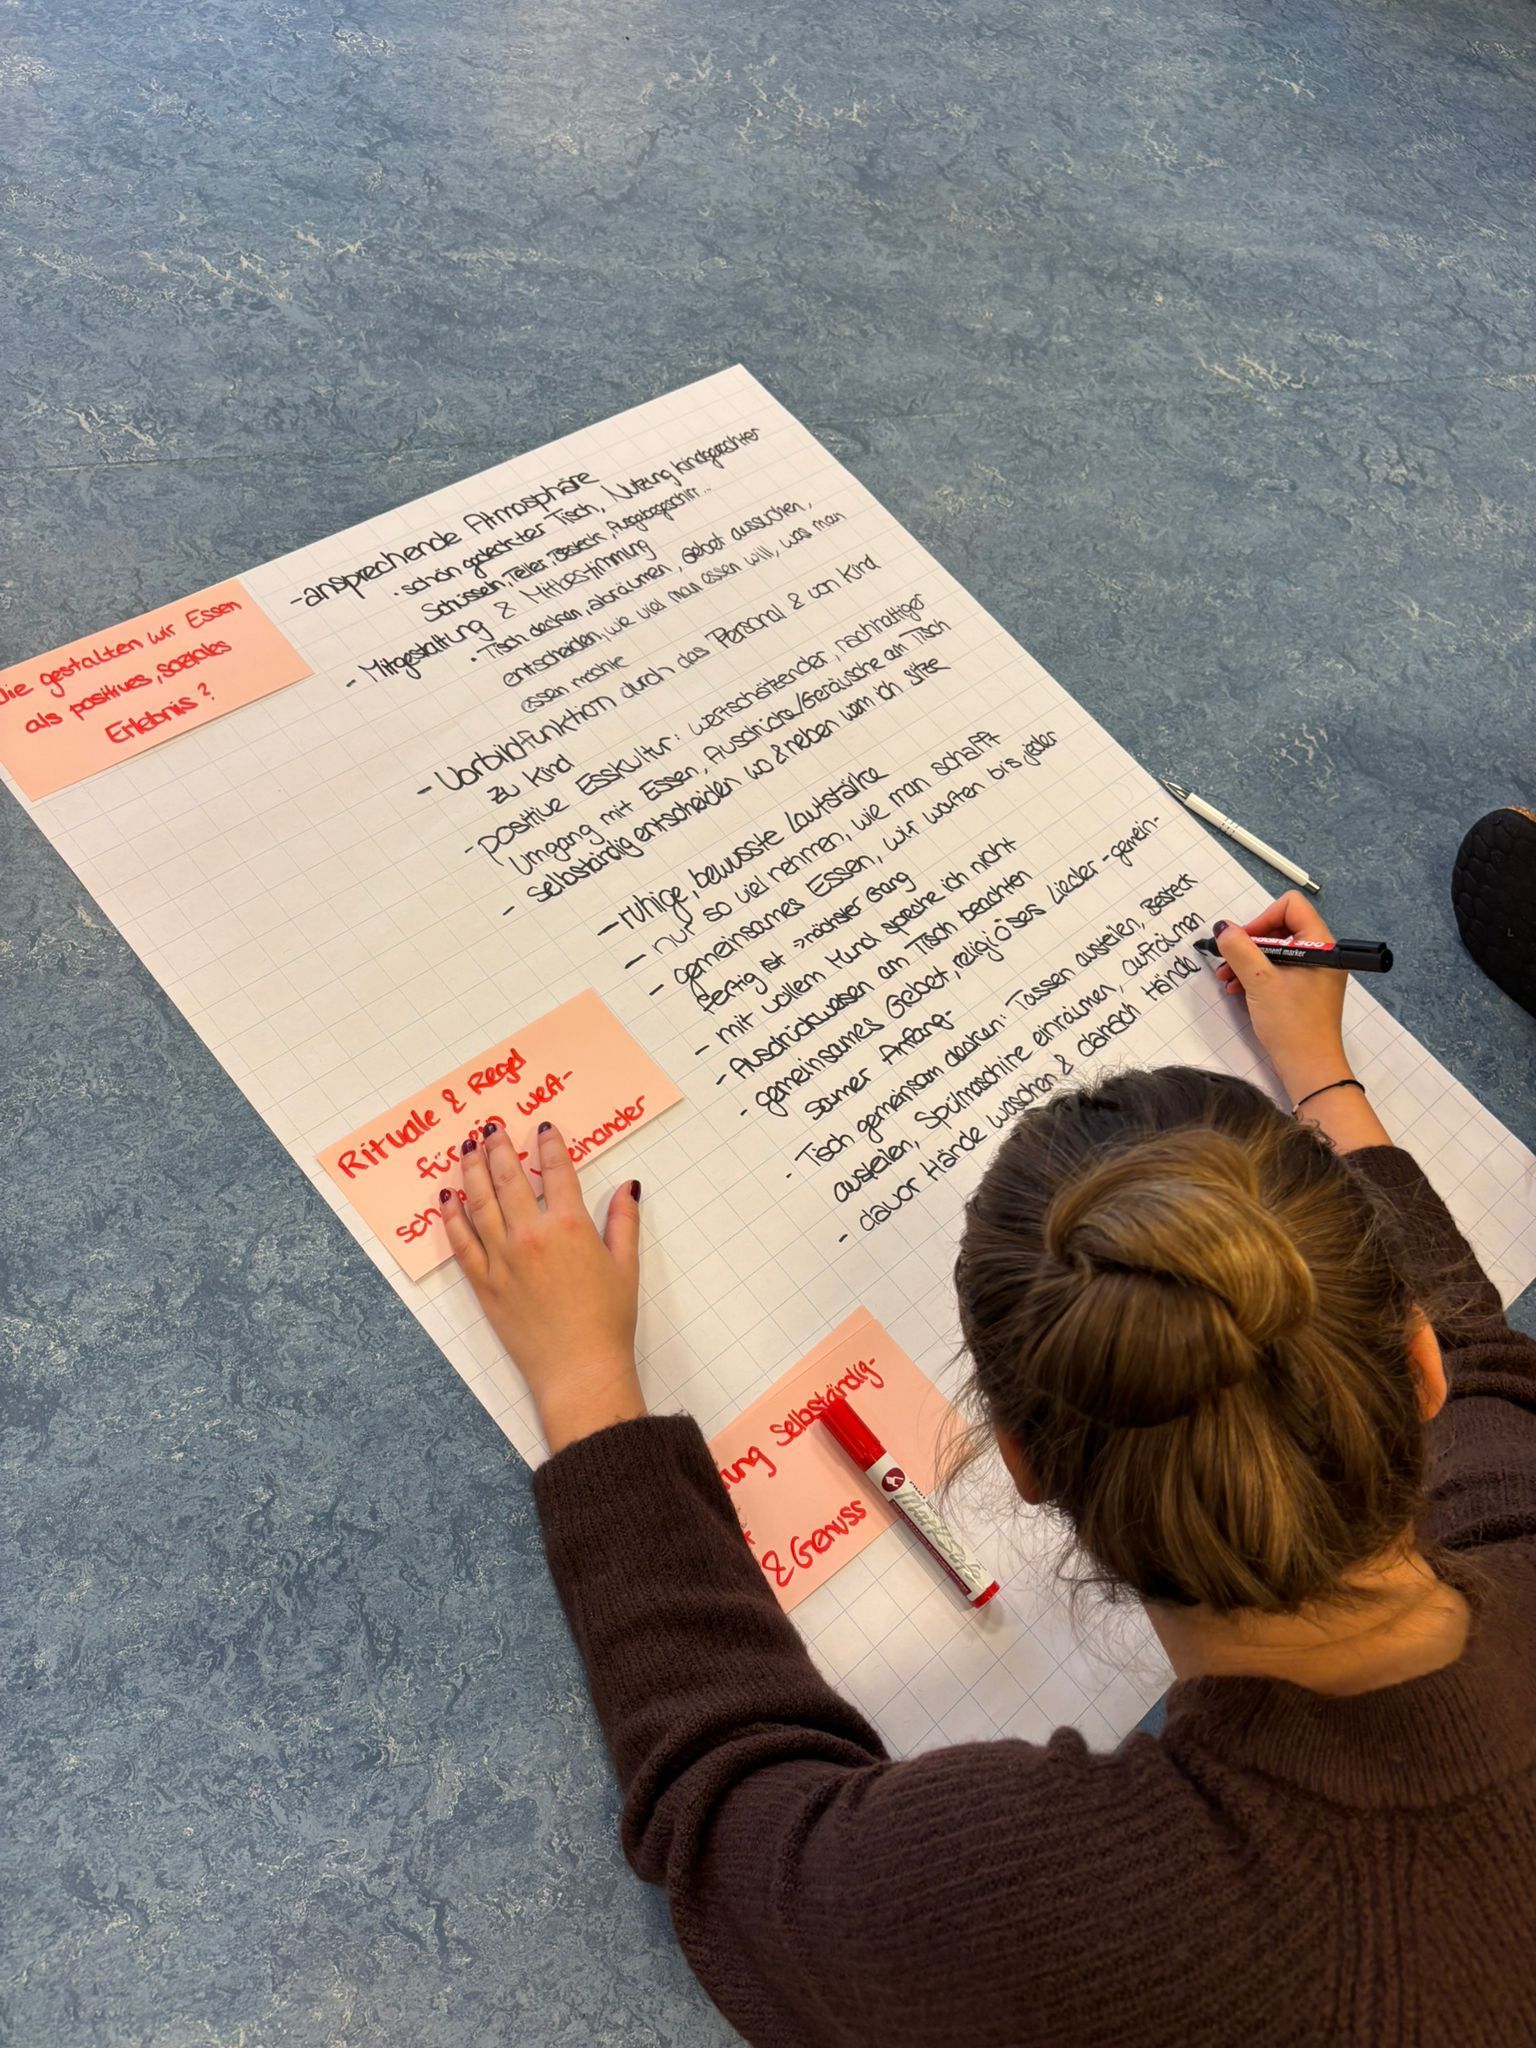 Wie gestalten wir Essen
als positives, soziales
Erlebnis?
- ansprechende Atmosphäre
· schön gedeckter Tisch, Nutzung kindgerechter
Schüsseln, Teller, Besteck, Ausgabegeschirr...
- Mitgestaltung & Mitbestimmung
· Tisch decken, abräumen, Gebet aussuchen,
entscheiden, wie viel man essen will, was man
essen möchte
- Vorbildfunktion durch das Personal & von Kind
zu Kind
- positive Esskultur: wertschätzender, nachhaltiger
Umgang mit Essen, Ausdrücke/Geräusche am Tisch
- selbständig entscheiden wo & neben wem ich sitze
Rituale & Regel
für ein wert-
sch
einander
- ruhige, bewusste Lautstärke
- nur so viel nehmen, wie man schafft
- gemeinsames Essen, wir warten bis jeder
fertig ist -> nächster Gang
- mit vollem Mund spreche ich nicht
- Ausdrücksweisen am Tisch beachten
- gemeinsames Gebet, religiöses Lieder - gemein-
samer Anfang -
- Tisch gemeinsam decken: Tassen austeilen, Besteck
austeilen, Spülmaschine einräumen, aufräumen
- davor Hände waschen & danach Hände
ung Selbständig-
& Genuss
edding 300
permanent marker